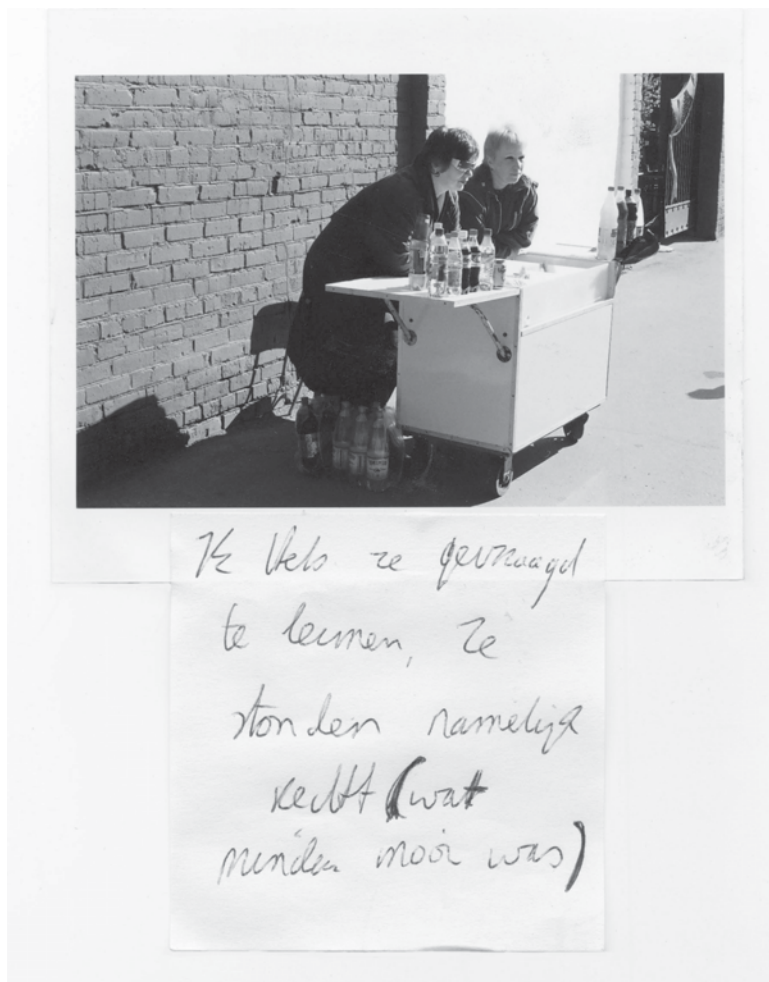 Ik heb ze gevraagd
te leunen, ze
stonden namelijk
recht (wat
minder mooi was)